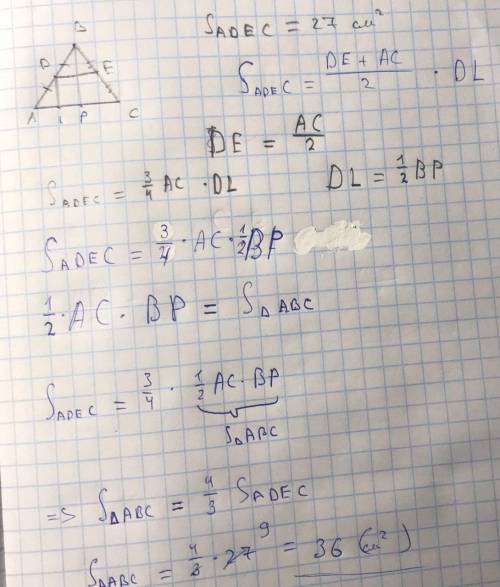 B
S_ADEC = 27 см²
D E
S_ADEC = (DE + AC)/2 · DL
A L P C
DE = AC/2
S_ADEC = 3/4 AC · DL DL = 1/2 BP
S_ADEC = 3/4 · AC · 1/2 BP
1/2 · AC · BP = S_ΔABC
S_ADEC = 3/4 · 1/2 AC · BP
S_ΔABC
=> S_ΔABC = 4/3 S_ADEC
S_ΔABC = 4/3 · 27 9 = 36 (см²)